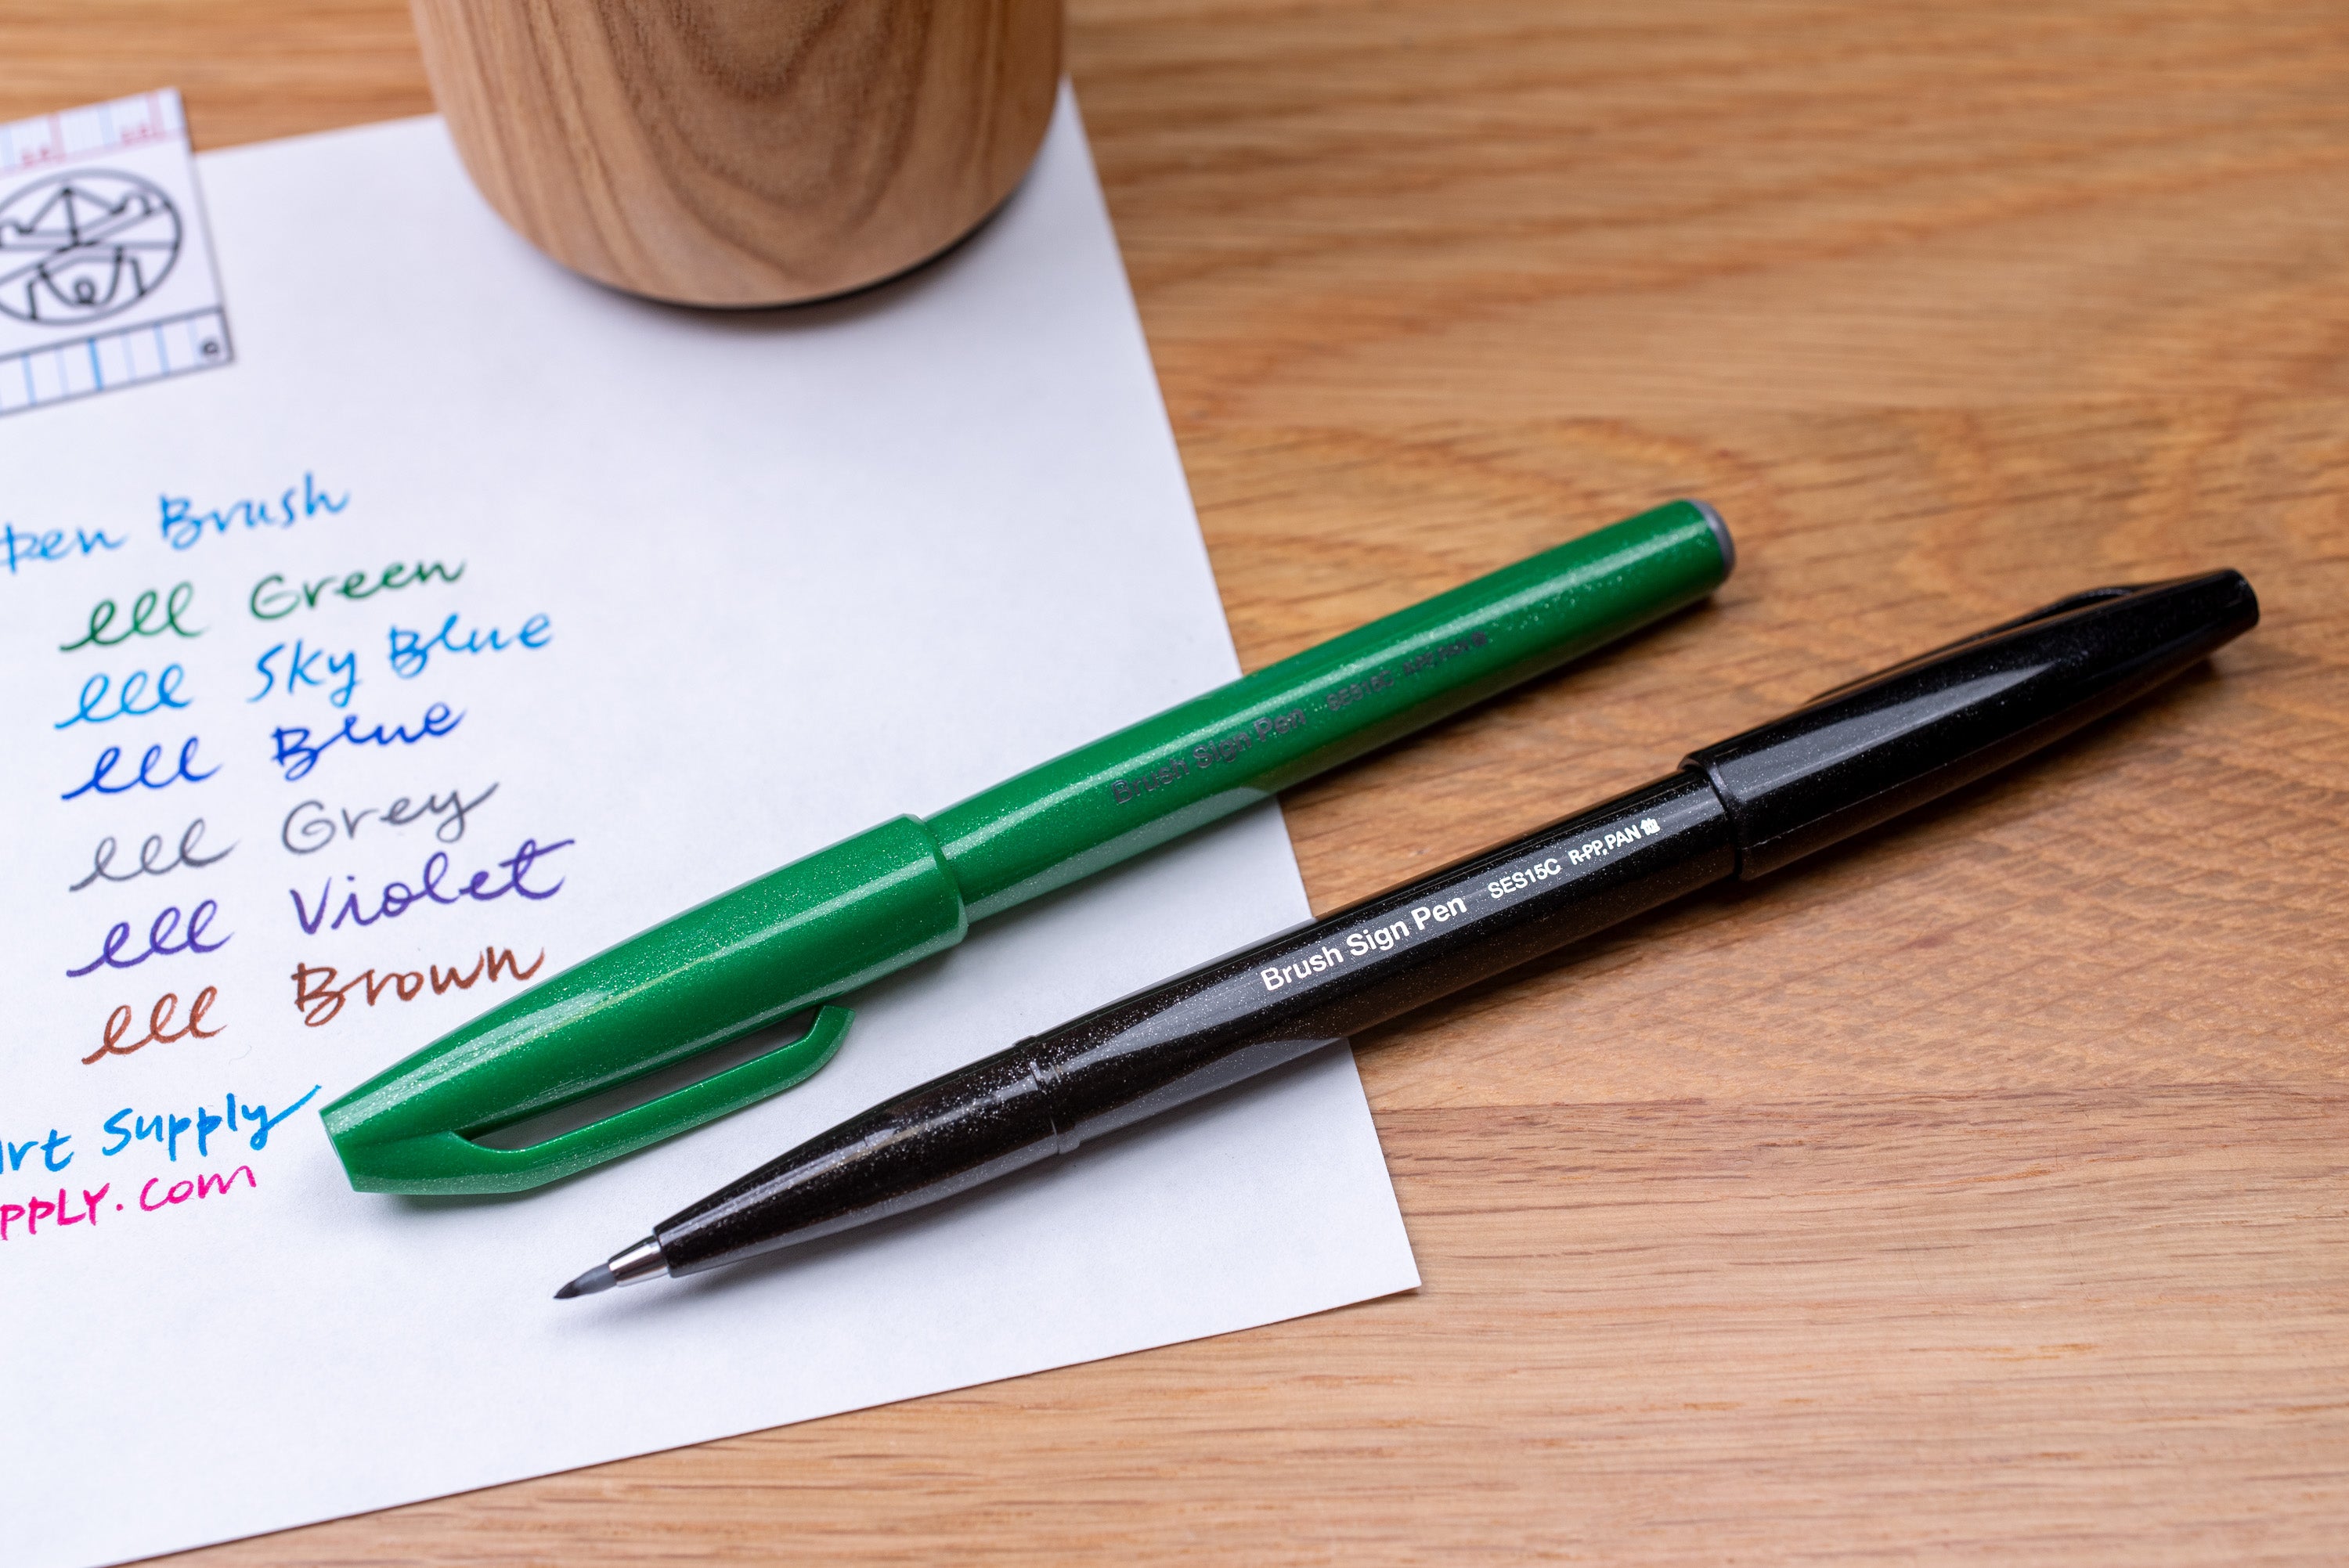 Pen Brush
lll Green
lll Sky Blue
lll Blue
lll Grey
lll Violet
lll Brown
Art Supply
PPLY.com
Brush Sign Pen SES15C R-PP,PAN
Brush Sign Pen SES15C R-PP,PAN